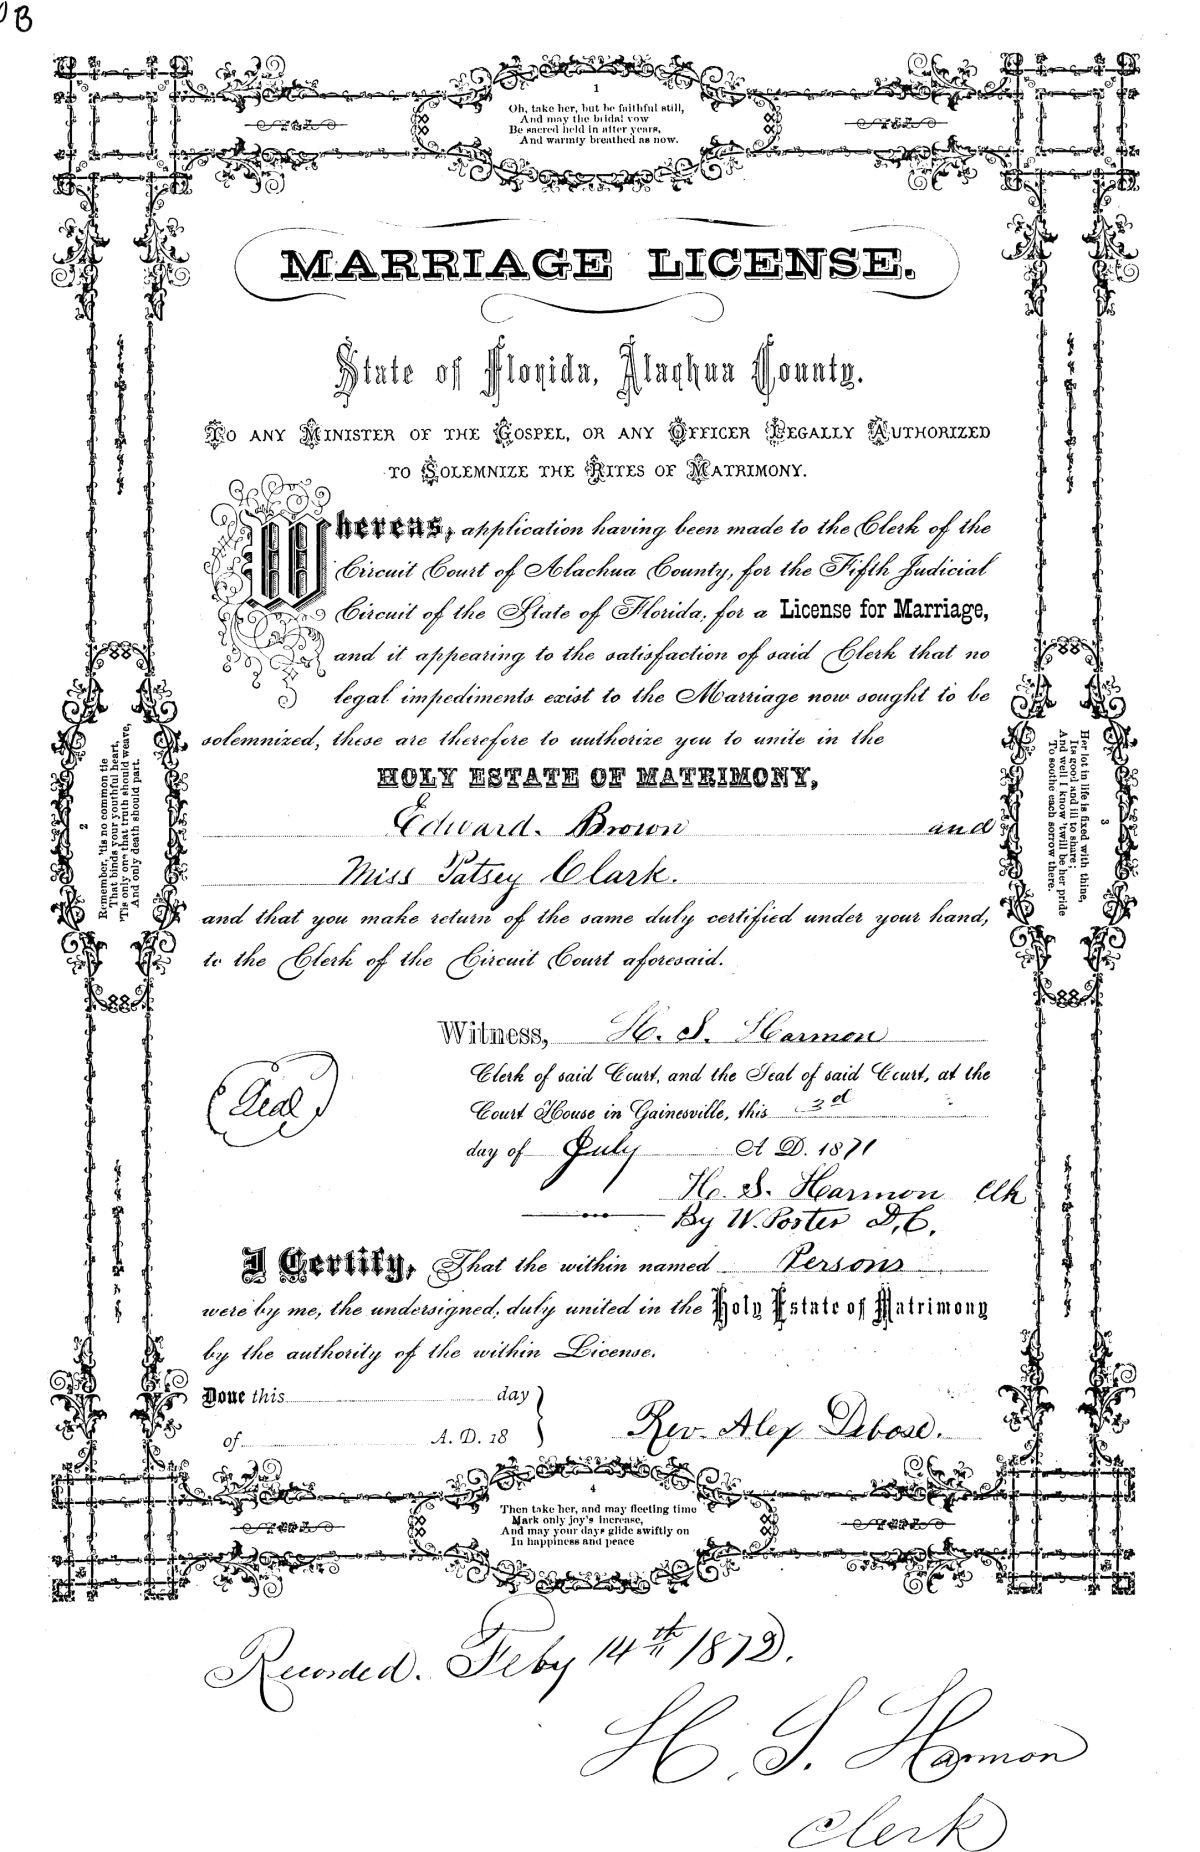 B
1
Oh, take her, but be faithful still,
And may the bridal vow
Be sacred held in after years,
And warmly breathed as now.
MARRIAGE LICENSE.
State of Florida, Alachua County.
TO ANY MINISTER OF THE GOSPEL, OR ANY OFFICER LEGALLY AUTHORIZED
TO SOLEMNIZE THE RITES OF MATRIMONY.
Whereas, application having been made to the Clerk of the
Circuit Court of Alachua County, for the Fifth Judicial
Circuit of the State of Florida, for a License for Marriage,
and it appearing to the satisfaction of said Clerk that no
legal impediments exist to the Marriage now sought to be
solemnized, these are therefore to authorize you to unite in the
HOLY ESTATE OF MATRIMONY,
Edward. Brown and
Miss Patsey Clark.
and that you make return of the same duly certified under your hand,
to the Clerk of the Circuit Court aforesaid.
2
Remember, 'tis no common tie
That binds your youthful heart,
'Tis only one that truth should weave,
And only death should part.
3
Her lot in life is fixed with thine,
Its good and ill to share;
And well I know 'twill be her pride
To soothe each sorrow there.
Witness, H. S. Harmon
Seal
Clerk of said Court, and the Seal of said Court, at the
Court House in Gainesville, this 3d
day of July A D. 1871
H. S. Harmon Clk
By W. Porter D.C.
I Certify, That the within named Persons
were by me, the undersigned, duly united in the Holy Estate of Matrimony
by the authority of the within License.
Done this day
of A. D. 18
Rev. Alex Debose.
4
Then take her, and may fleeting time
Mark only joy's increase,
And may your days glide swiftly on
In happiness and peace
Recorded. Feby 14th 1872.
H. S. Harmon
Clerk